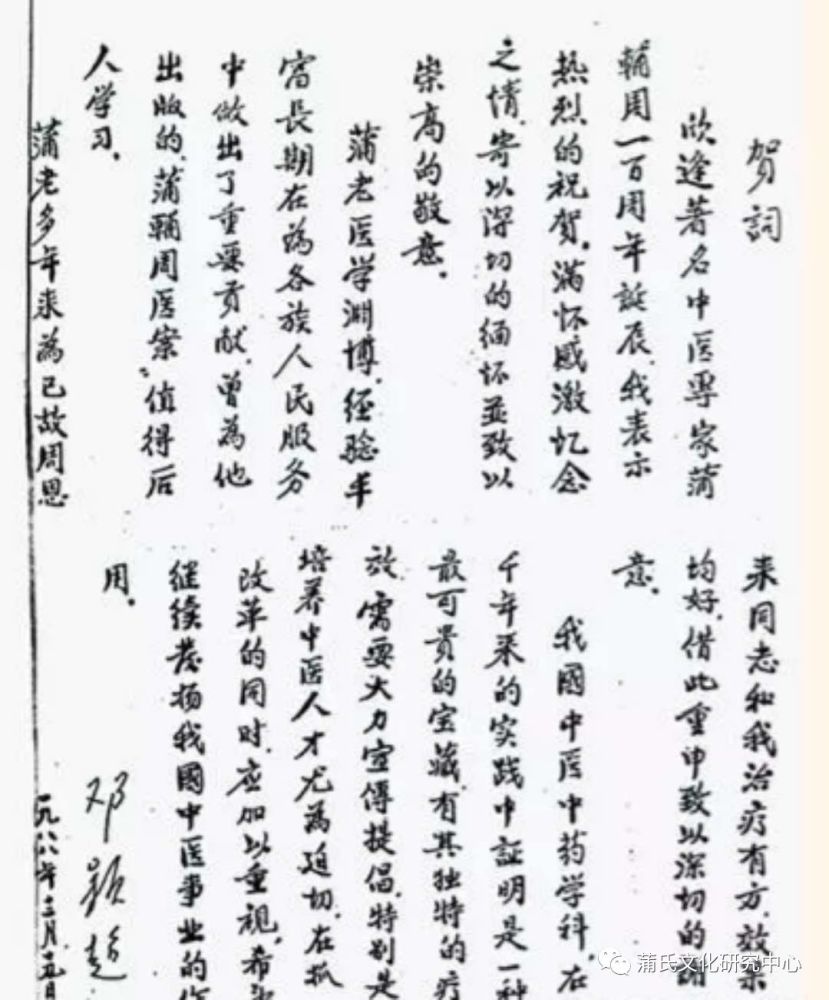 贺词
欣逢著名中医专家蒲
輔周一百周年誕辰,我表示
热烈的祝贺。满怀感激忆念
之情,寄以深切的缅怀並致以
崇高的敬意。
蒲老医学渊博,经验丰
富長期在為各族人民服务
中做出了重要贡献,曾為他
出版的“蒲輔周医案”值得后
人学习。
蒲老多年来為已故周恩
来同志和我治疗有方,效果
均好,借此重申致以深切的謝
意。
我國中医中药学科,在
千年来的实践中証明是一种
最可贵的宝藏,有其独特的疗
效,需要大力宣傳提倡,特别是
培养中医人才尤為迫切,在抓
改革的同时,应加以重视,希望
继续发扬我國中医事业的作
用。
邓颖超
一九八八年三月五日
蒲氏文化研究中心